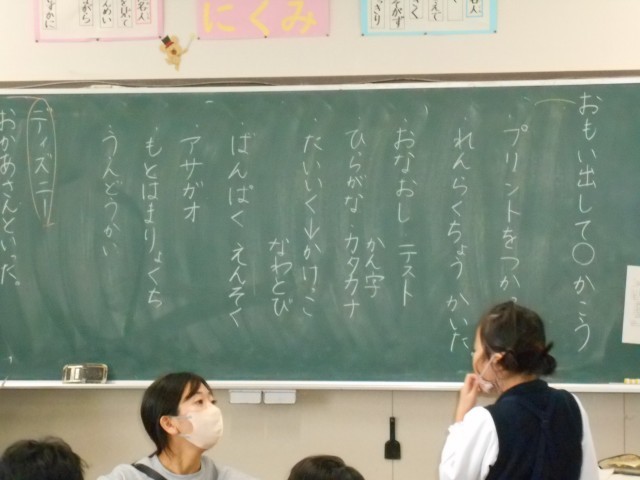 にくみ
おもい出して〇かこう
プリントをつか
れんらくちょう かいた
おなおし テスト
ひらがな カタカナ かん字
たいいく→かけっこ
なわとび
ばんぱく えんそく
アサガオ
もとはまりょくち
うんどうかい
ディズニー
おかあさんといった。